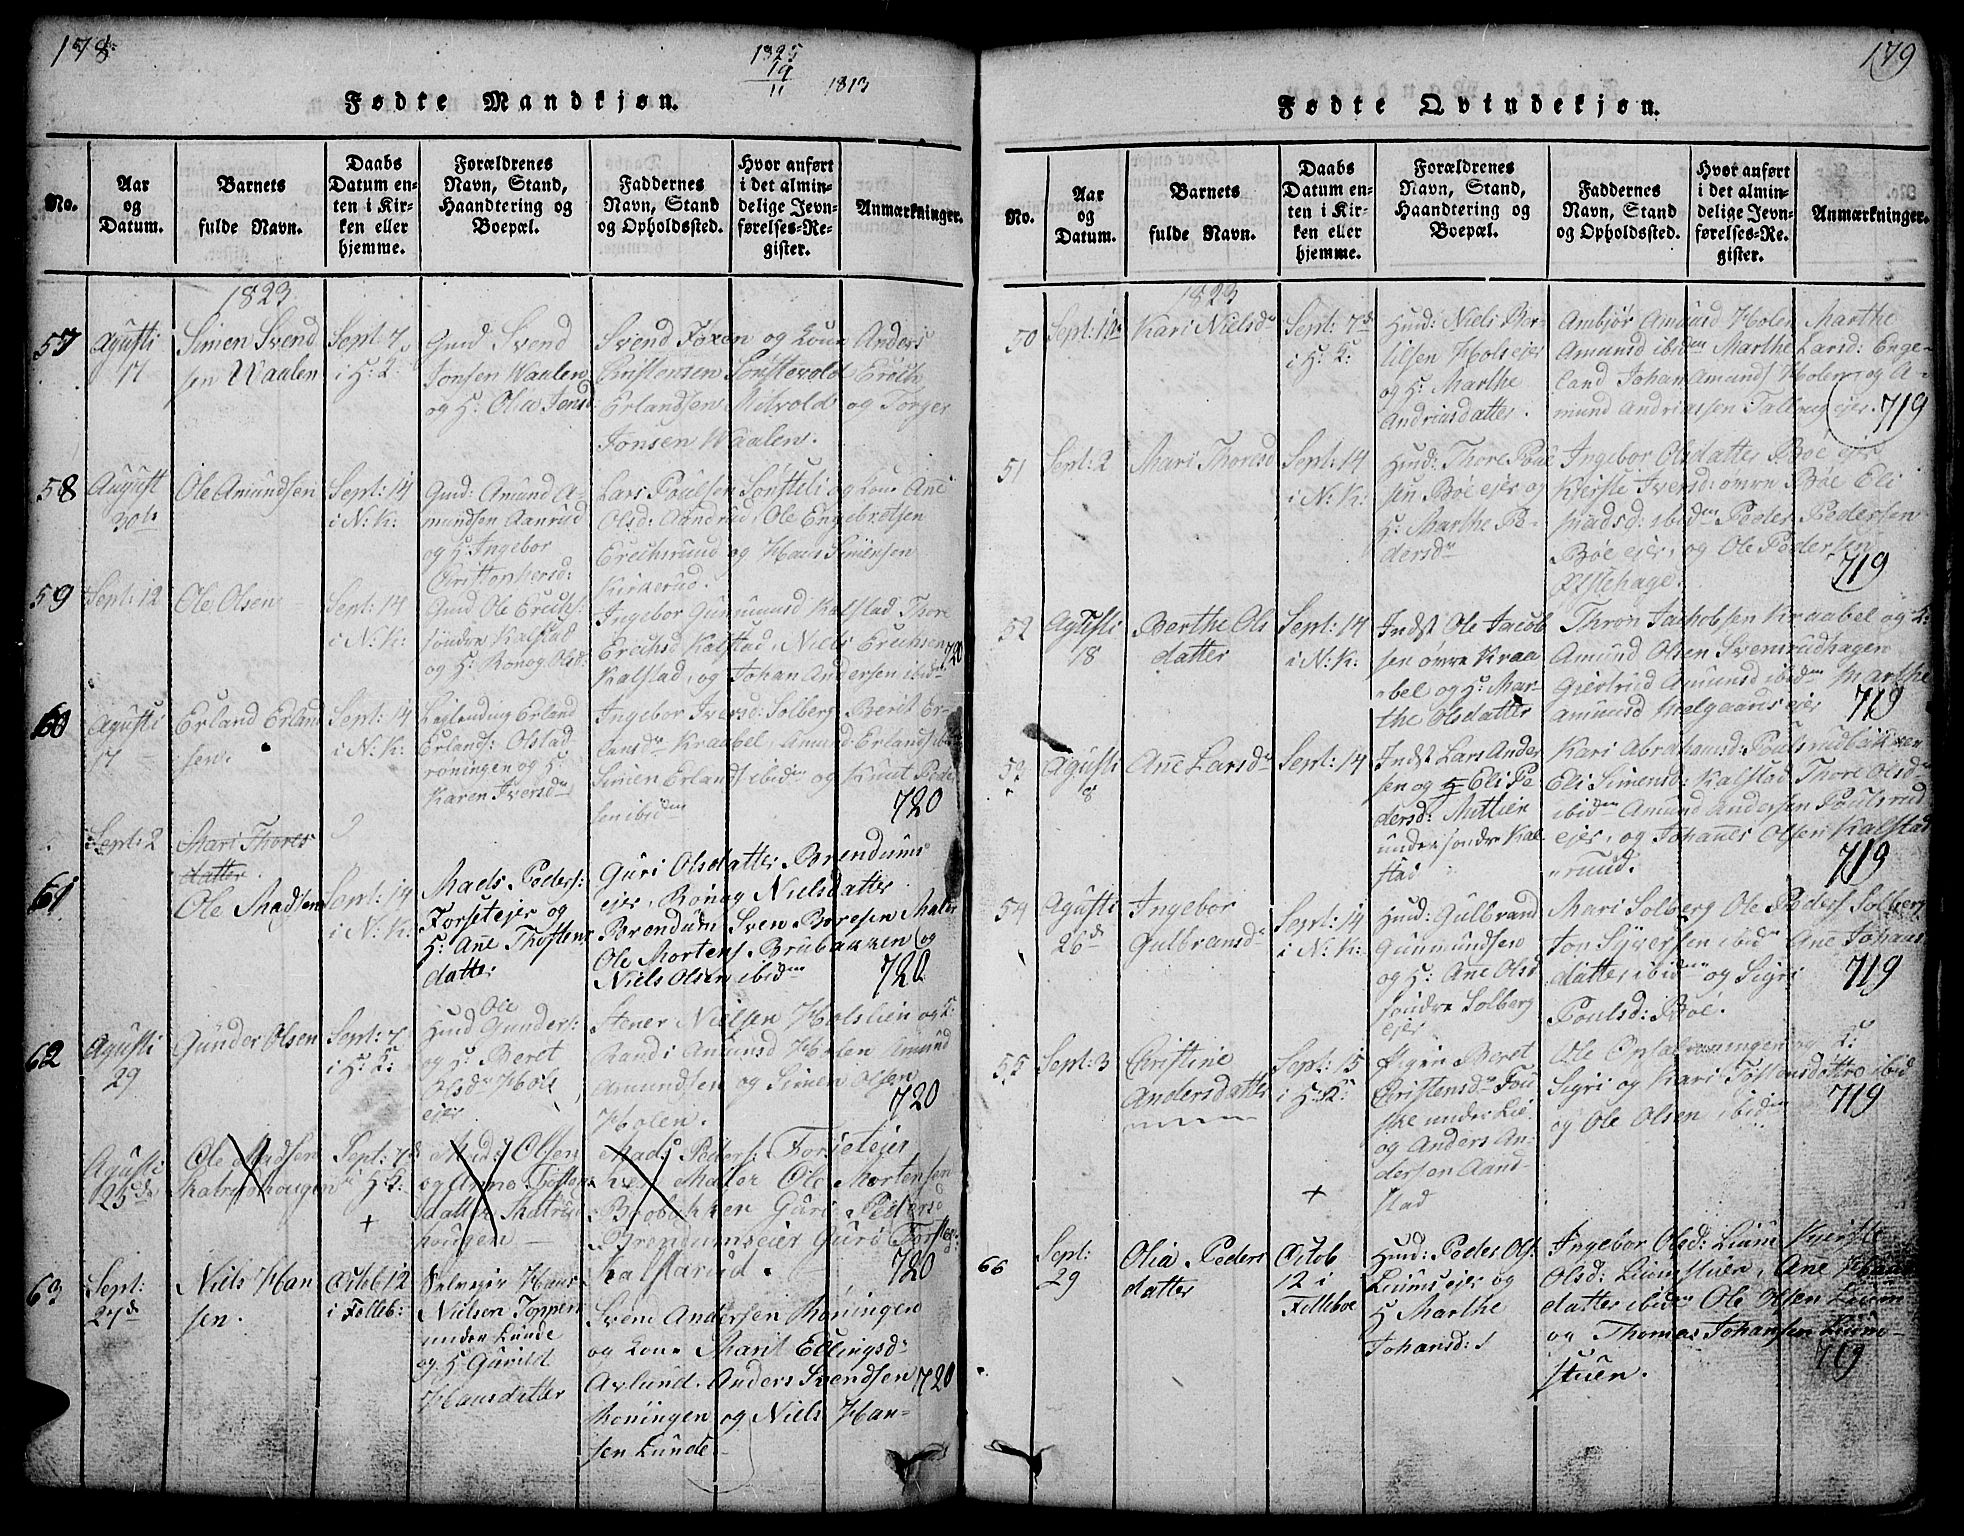 178.
1825
19
11
1813
Fødte Mandkjøn.
No.
Aar
og
Datum.
Barnets
fulde Navn.
Daabs
Datum en-
ten i Kir-
ken eller
hjemme.
Forældrenes
Navn, Stand,
Haandtering og
Boepæl.
Faddernes
Navn, Stand
og Opholdssted.
Hvor anført
i det almin-
delige Jevn-
førelses-Re-
gister.
Anmærkninger.
1823
57
Agusti
17
Simen Svend
sen Waalen
Sept: 7
i H: K:
Gmd Svend
Jonsen Waalen
og H: Olia Jensd
Svend Joxen og Kone Anders
Christensen Sønstevold Erich
Erlandsen Melvold og Torger
Jonsen Waalen.
58
August
30te
Ole Amundsen
Sept: 14
i N: K:
Gmd: Amund A-
mundsen Aanrud
og H: Ingebor
Christophersd:
Lars Poulsen Sønsteli og Kone Ane
Olsd: Aandrud, Ole Engebretsen
Erichsruud og Hans Simensen
Kirkerud.
59
Sept: 12
Ole Olsen
Sept: 14
i N: K:
Gmd Ole Erichs:
søndre Kalstad
og H: Ronog Olsd:
Ingebor Gunmunsd Kalstad Thore
Erichsd Kalstad, Niels Erichsen
Kalstad, og Johan Andersen ibid
720
60
Agusti
17
Erland Erland
sen.
Sept: 14
i N: K:
Leglending Erland
Erlands: Olstad
røningen og H:
Karen Iversd
Ingebor Iversd: Solberg Beret Er-
lansd Kraabel, Amund Erlands ibid
Simen Erlands ibid og Knut Peder
sen ibid
720
Sept: 2
Mari Thores
datter.
61
Ole Madsen
Sept: 14
i N: K:
Mads Peders:
Forsetejer og
H: Ane Thostens
datter
Guri Olsdatter Brendums
ejer, Rønog Nielsdatter
Brendum Sven Boresen Maler
Ole Mortens Brubakken og
Niels Olsen ibid
720
62
Agusti
29
Gunder Olsen
Sept: 7
i H: K:
Ole
Hmd Gunders:
og H: Beret
Olsd Hols
ejer
Stener Nielsen Holslien og K:
Randi Amunsd Holen Amund
Amundsen og Simen Olsen
Holen.
720
Agusti
25d
Ole Madsen
Sept: 7d
i H: K:
+
Mads Olsen
og Anne Tosten
datter
Mads Peders: Forseteier
Maler Ole Mortensen
Brobakken Guri Pedersd
Brendumseier Guri Torsten
720
63
Sept:
27d
Niels Han
sen.
Octob 12
i Folleb:
Selveier Hans
Nielsen Toppen
under Lunde
og H Gunild
Hansdatter
Svend Andersen Roningen
og Kone Marit Ellingsd
Avlund, Anders Svendsen
Roningen og Niels Han-
sen Lunde
720
179
Fødte Qvindekjøn.
No.
Aar
og
Datum.
Barnets
fulde Navn.
Daabs
Datum en-
ten i Kir-
ken eller
hjemme.
Forældrenes
Navn, Stand,
Haandtering og
Boepæl.
Faddernes
Navn, Stand
og Opholdssted.
Hvor anført
i det almin-
delige Jevn-
førelses-Re-
gister.
Anmærkninger.
1823
50
Sept: 1te
Kari Nielsd
Sept: 7d
i H: K:
Hmd: Niels Ber-
tilsen Holsejer
og H: Marthe
Andriasdatter.
Ambjør Amund Holen Marthe
Amunsd ibid Marthe Larsd: Enge-
land Johan Amunds Holen, og A-
mund Andriassen Talleug ejer.
719
51
Sept: 2
Mari Thoresd
Sept: 14
i N: K:
Hmd: Thore Poul
sen Bøe ejer og
H: Marthe Pe-
dersd
Ingebor Olsdatter Bøe ejer
Kjerste Iversd: øvre Bøe Eli
Madsd: ibid Peder Pedersen
Bøe ejer, og Ole Pedersen
719
52
Agusti
18
Berthe Ols
datter
Sept: 14
i N: K:
Indst Ole Jacob
sen øvre Kraa
bel og H: Mar-
the Olsdatter
Thron Jachobsen Kraabel og K:
Amund Olsen Svensrudhagen
Giertrud Amunsd ibid Marthe
Amunsd Melgaards ejer
719
53
Agusti
8
Ane Larsd
Sept: 14
Indst Lars Ander
sen og H Eli Pe
dersd: Mettien
under søndre Kal
stad
Kari Abrahamsd: Poulsrudbakken
Eli Simensd: Kalstad Thore Olsd
ibid Amund Andersen Poulsrud
ejer, og Johanes Olsen Kalstad
ruud.
719
54
Agusti
26d
Ingebor
Gulbransd
Sept: 14
i N: K:
Hmd: Gulbrand
Gunmundsen
og H: Ane Olsd
søndre Solberg
ejer
Mari Solberg Ole Peders Solberg
Jon Syversen ibid Ane Johans
datter ibid og Sigri
Poulsd: Bøe.
719
55
Sept: 3
Christine
Andersdatter
Sept: 15
i H: K:
Pigen Beret
Christensd Fou
ske under Lie
og Anders An-
dersen Aand-
stad
+
Ole Opsalroningen og K:
Sigri og Kari Tostensdøttre ibid
og Ole Olsen ibid
719
66
Sept:
29
Olia Peders
datter
Octob
12 i
Folleboe
Hmd: Peder Ols:
Liumsejer og
H Marthe
Johansd:
Ingebor Olsd: Lium Kjerste
Olsd: Liumstuen, Ane Hans
datter ibid Ole Olsen Lium
og Thomas Johansen Lium-
stuen.
719